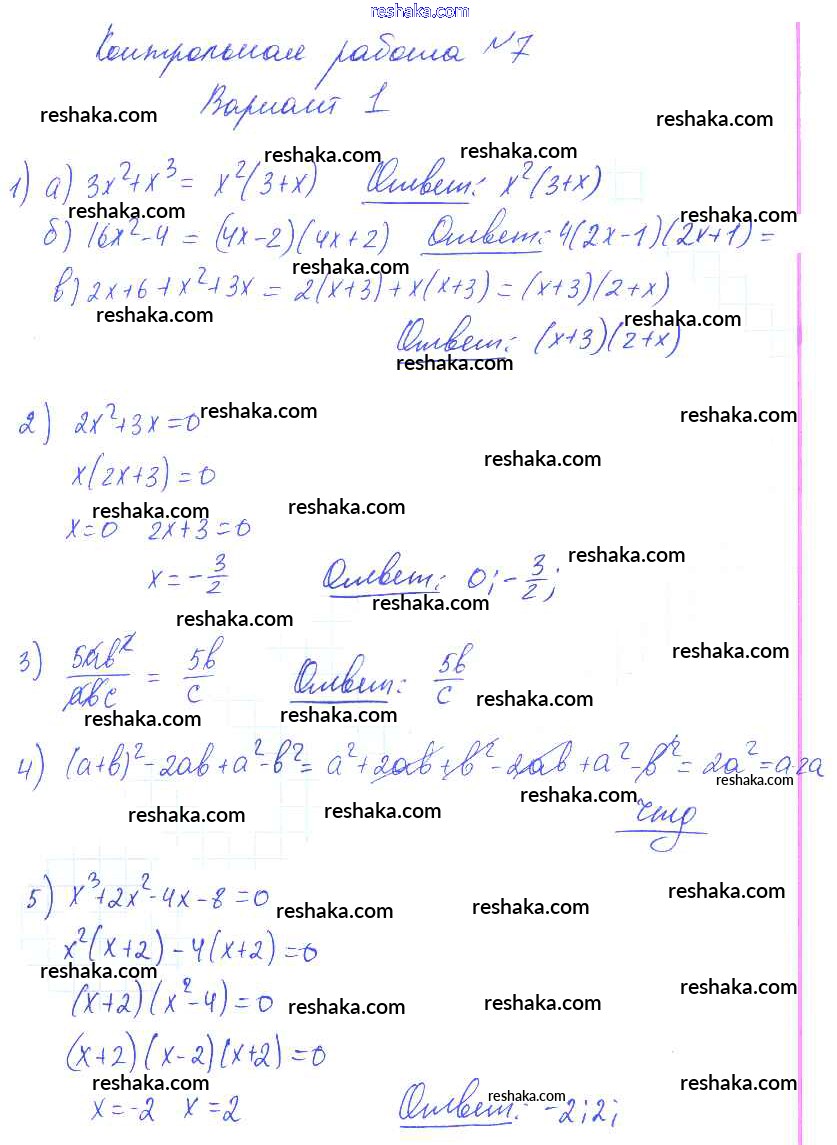 reshaka.com
Контрольная работа №7
Вариант 1
reshaka.com reshaka.com
reshaka.com reshaka.com
1) а) 3x²+x³ = x²(3+x) Ответ: x²(3+x)
reshaka.com reshaka.com
б) 16x²-4 = (4x-2)(4x+2) Ответ: 4(2x-1)(2x+1) =
reshaka.com
в) 2x+6+x²+3x = 2(x+3)+x(x+3) = (x+3)(2+x)
reshaka.com reshaka.com
Ответ: (x+3)(2+x)
reshaka.com
2) 2x²+3x=0
reshaka.com reshaka.com
reshaka.com
x(2x+3)=0
reshaka.com reshaka.com
x=0 2x+3=0
reshaka.com
x=-3/2 Ответ: 0; -3/2;
reshaka.com
reshaka.com
3) 5ab²/abc = 5b/c Ответ: 5b/c
reshaka.com
reshaka.com
reshaka.com reshaka.com
4) (a+b)²-2ab+a²-b²= a²+2ab+b²-2ab+a²-b²= 2a²=a·2a
reshaka.com
reshaka.com reshaka.com reshaka.com
чтд
5) x³+2x²-4x-8=0
reshaka.com
reshaka.com reshaka.com
x²(x+2)-4(x+2)=0
reshaka.com
(x+2)(x²-4)=0
reshaka.com reshaka.com reshaka.com
(x+2)(x-2)(x+2)=0
reshaka.com reshaka.com reshaka.com
x=-2 x=2 Ответ: -2; 2;